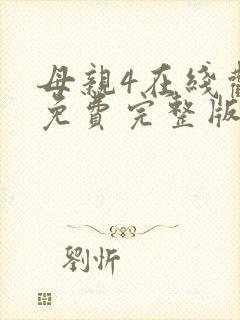 母親4在綫
免費完整版
劉忻